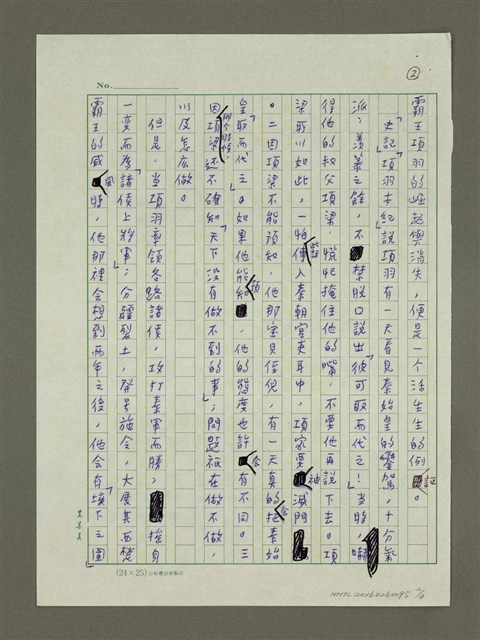 No.
②
霸王項羽的崛起與消失，便是一個活生生的例證。
史記「項羽本紀」說項羽有一天看見秦始皇的鑾駕，十分氣
派，羨慕之餘，不禁脫口說出「彼可取而代之」！當時，嚇
得他的叔父項梁，慌忙掩住他的嘴，不要他再說下去。項
梁所以如此，一怕此話傳入秦朝官吏耳中，項家要被滅門
。二因項梁不能預知，他那寶貝侄兒，有一天真的把秦始
皇「取而代之」。如果他能預知，他的態度也許會有不同。三
因那個時候，項梁還不確知「天下沒有做不到的事」；問題祇在做不做，
以及怎麼做。
但是，當項羽率領各路諸侯，攻打秦軍而勝，挨身
一變而為「諸侯上將軍」；分疆裂土，發号施令，大展其西楚
霸王的威風時，他那裡會想到兩年之後，他會有「垓下之圍」
(24×25)
NMTL20160260095 2/9